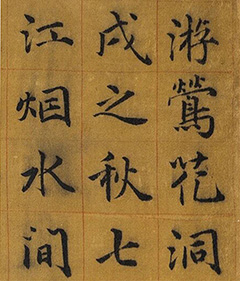 游鶯花洞
戌之秋七
江烟水間